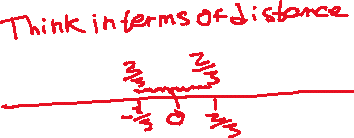 Think in terms of distance
2/3 2/3
-2/3 0 2/3